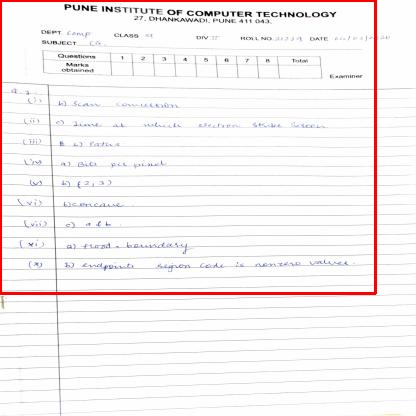 PUNE INSTITUTE OF COMPUTER TECHNOLOGY
27, DHANKAWADI, PUNE 411 043.
DEPT. Comp CLASS SE DIV. II ROLL NO. DATE
SUBJECT CG.
Questions 1 2 3 4 5 6 7 8 Total
Marks obtained
Examiner
(i) b) Scan conversion
(ii) c) Time at which electron strike screen
(iii) c) Ratio
(iv) a) Bits per pixel
(v) b) (2, 3)
(vi) b) concave
(vii) c) a & b.
(xi) a) flood - boundary
(x) b) endpoints region code is nonzero values.